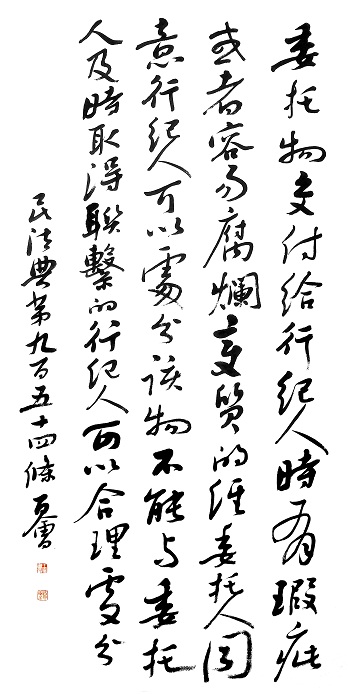 委托物交付给行纪人時有瑕疵
或者容易腐爛變質的經委托人同
意行纪人可以處分該物不能与委托
人及時取得聯繫的行纪人可以合理處分
民法典第九百五十四條